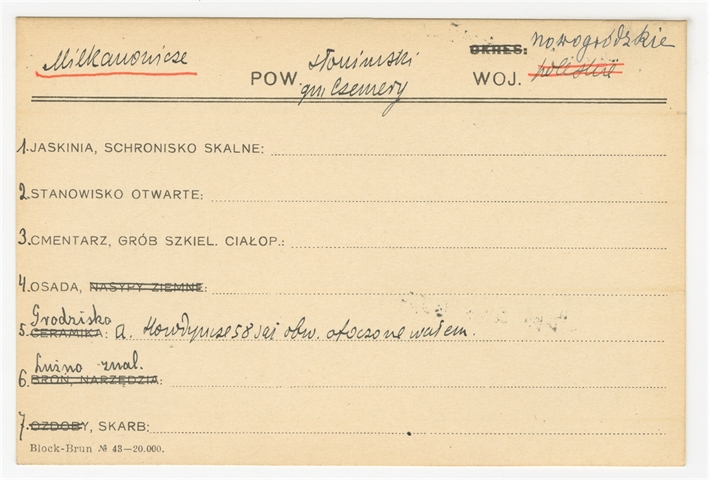 Milkanowicze
POW. słonimski
gm. Czemery
OKRES: nowogródzkie
WOJ. poleskie
1. JASKINIA, SCHRONISKO SKALNE:
2. STANOWISKO OTWARTE:
3. CMENTARZ, GRÓB SZKIEL. CIAŁOP.:
4. OSADA, NASYPY ZIEMNE:
Grodzisko
5. CERAMIKA: a. Horodyszcze 58 saż. obw. otoczone wałem.
Luźno znal.
6. BROŃ, NARZĘDZIA:
7. OZDOBY, SKARB:
Block-Brun № 43—20.000.